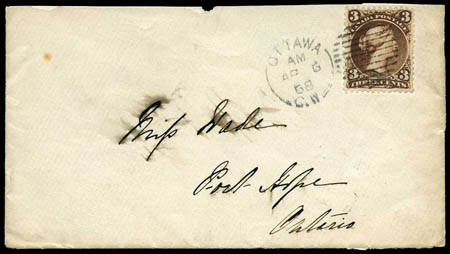 3 CANADA POSTAGE 3
3 THREE CENTS 3
OTTAWA
AM
AP 6
68
C.W
Miss Wade
Port Hope
Ontario